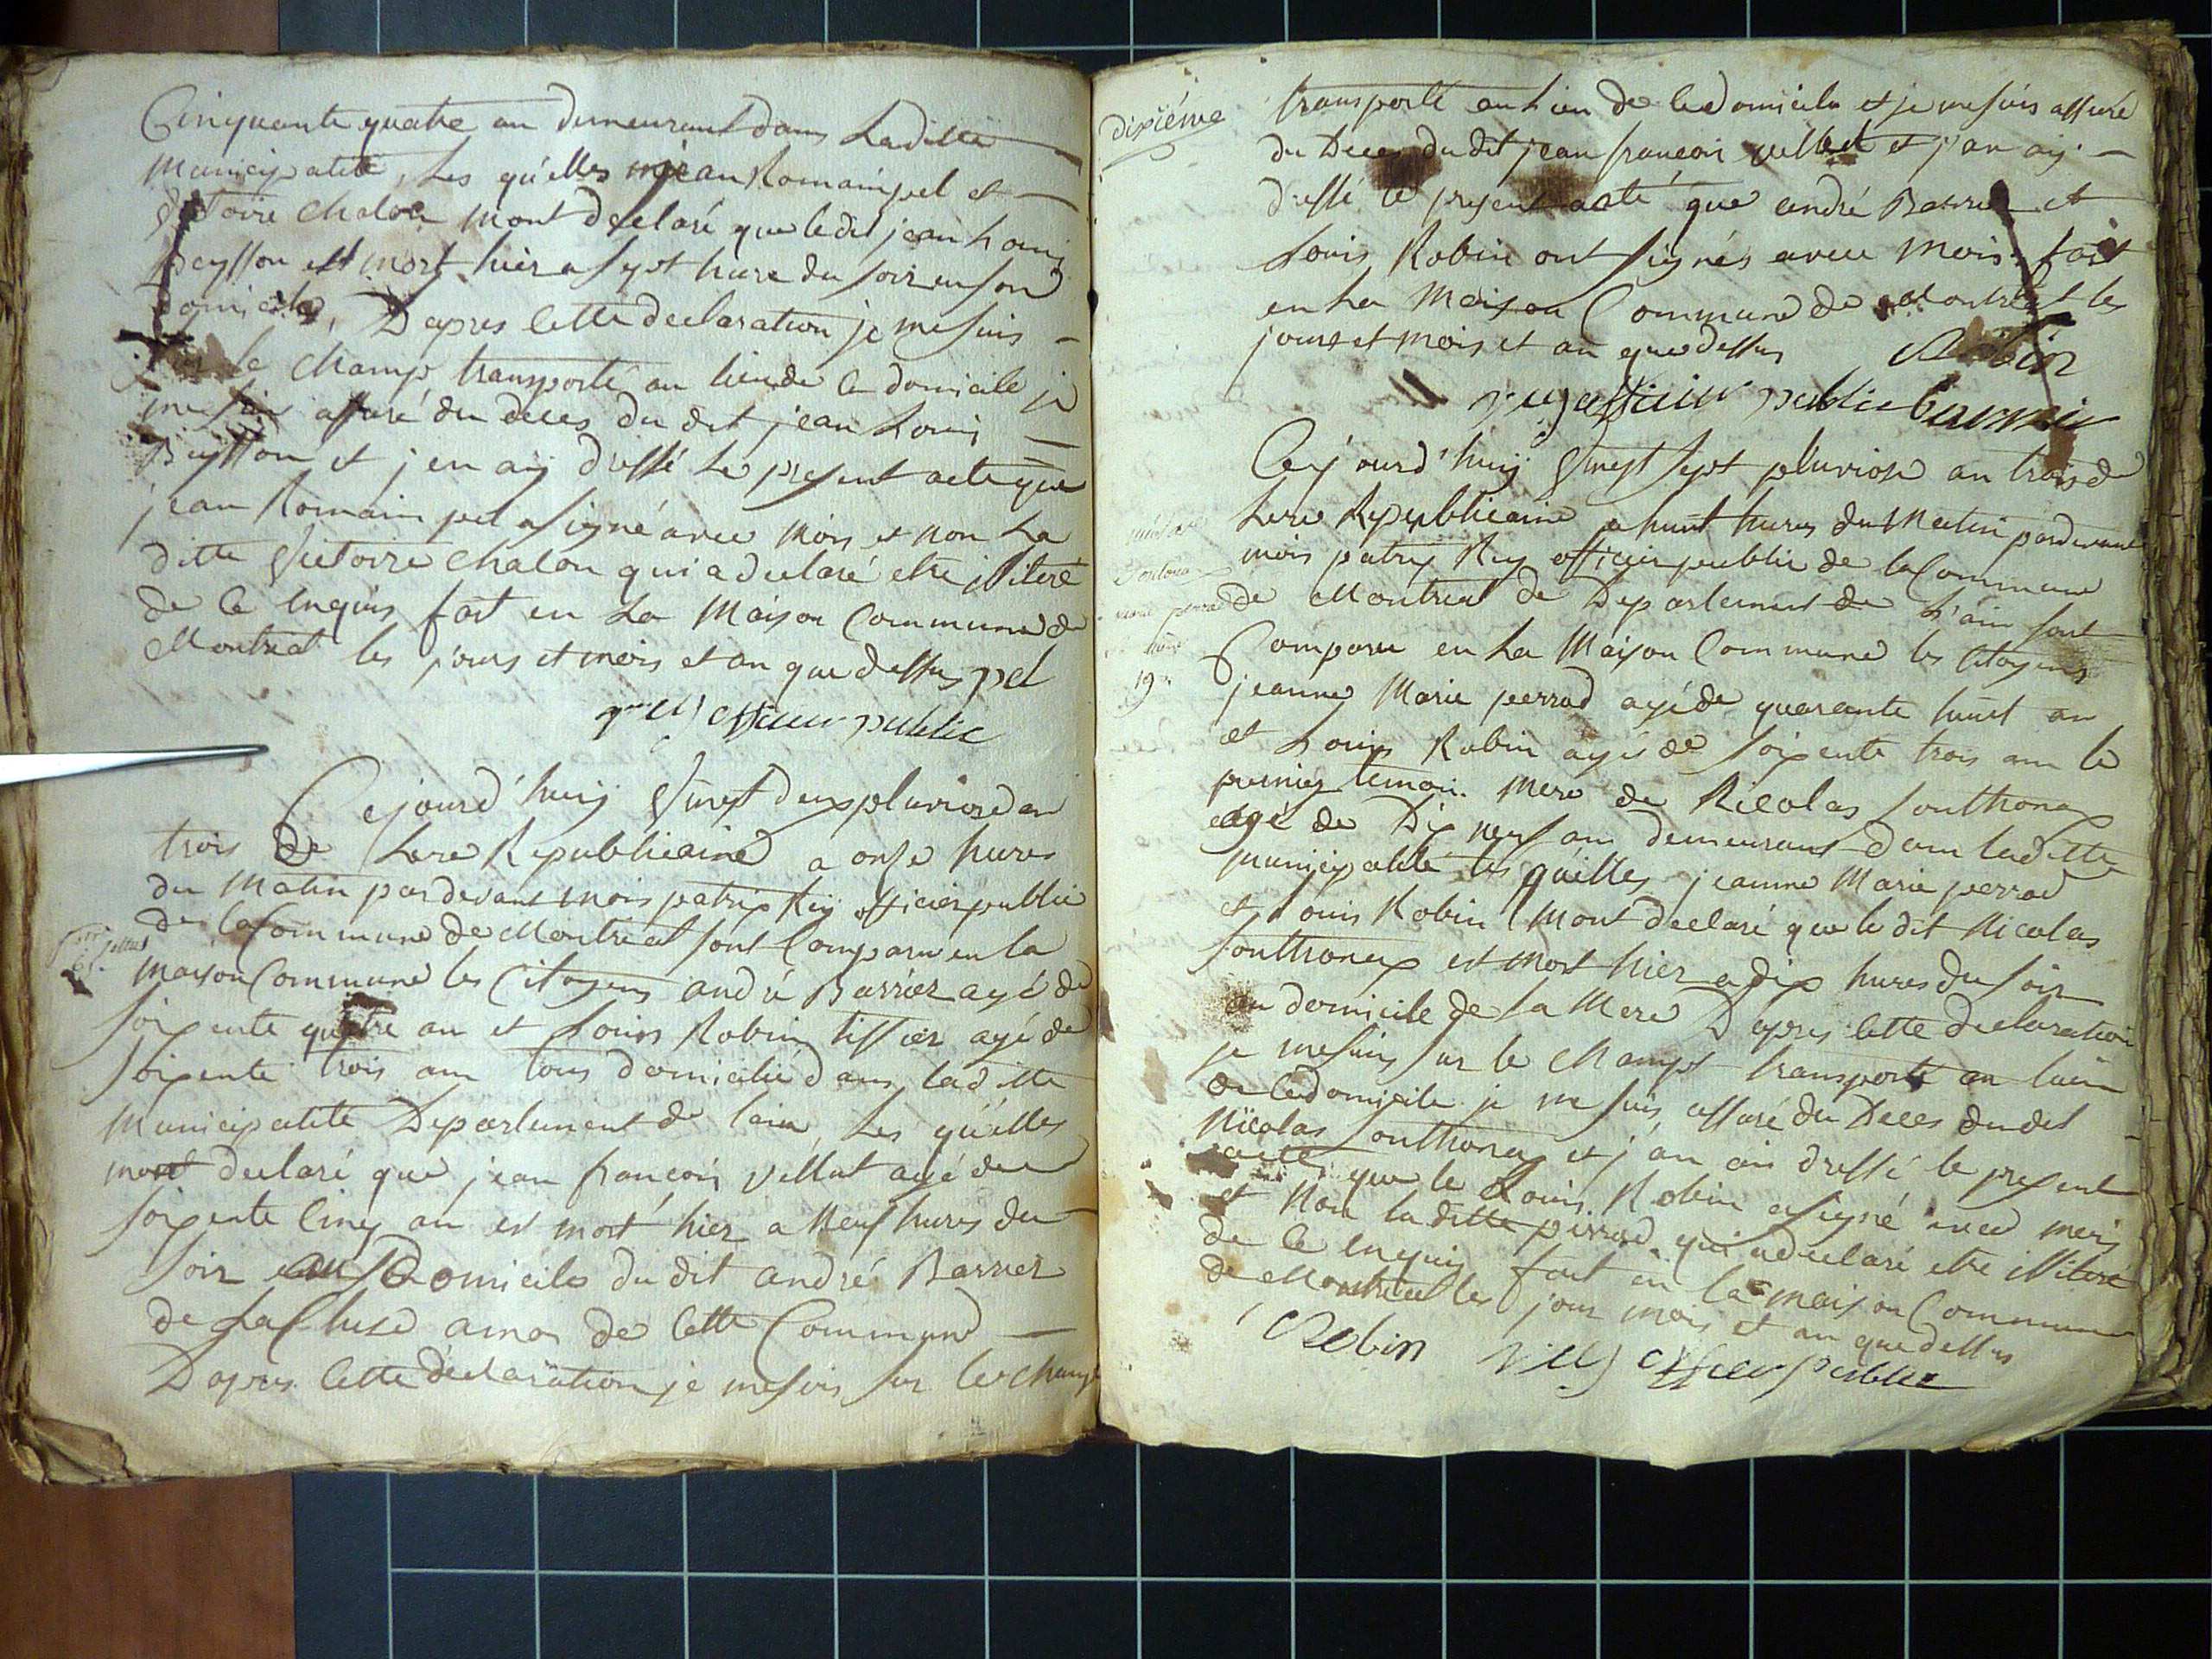 Cinquante quatre an demeurant dans Laditte
municipalité, Les quélles jean Romain pel et
Victoire chalon mont declaré que ledit jean Louis
Beysson est mort hier a sept hure du soir en son
domicile, Dapres cette declaration je me suis
le champ transporté au lieu de ce domicile je
me suis assuré du deces du dit jean Louis
Beysson et j'en aij dressé Le present acte que
jean Romain pel a signé avec mois et non La
ditte Victoire chalon qui a declaré etre illiteré
de ce enquis fait en La Maison Commune de
Montreal les jours et mois et an que dessus pel
officier public
Cejourd'huij Vingt deux pluviose an
trois de Lere Republicaine a onze hures
du Matin pardevant mois patrix Rey officier public
de la Commune de Montreal sont Comparu en la
maison Commune les Citoyens andré Barrier agé de
soixente quatre an et Louis Robin tissier agé de
soixente trois an tous domicilié dans laditte
Municipalite Departement de lain, Les quélles
mont declaré que jean francois Vellut agé de
soixente Cinq an est mort hier a Neuf hures du
soir au Domicile du dit andré Barrier
de la Cluse de Cette Commune
Dapres Cette declaration je me suis sur le champ
dixiéme
transporté au Lieu de ce domicile et je me suis assuré
du Deces du dit jean francois vellut et j'an aij
dressé le present acte que andré Barrier et
Louis Robin ont signés avec mois. fait
en La Maison Commune de Montreal les
jours et mois et an que dessus Robin
Rey officier public Barrier
Cejourd'huij Vingt sept pluviose an trois de
Lere Republicaine a huit hures du Matin pardevant
mois patrix Rey officier public de la Commune
de Montreal de Departement de L'ain sont
Comparu en La Maison Commune les Citoyens
19
jeanne Marie perrad agé de quarente huit an
et Louis Robin agés de soixente trois an le
premier temoin Mere de Nicolas Southonax
agé de Dix neuf an demeurant dans laditte
municipalité les quélles jeanne Marie perrad
et Louis Robin mont declaré que le dit Nicolas
Southonax est mort hier a dix hures du soir
au domicile de la Mere Dapres cette declaration
je me suis sur le champt transporté au lieu
de ce domicile je me suis assuré du Deces du dit
Nicolas Southonax et j'an ai dressé le present
acte que le Louis Robin a signé avec mois
et Non laditte perrad qui a declaré etre illiteré
de ce enquis fait en la maison Commune
de Montreal les jour mois et an que dessus
Robin Rey officier public